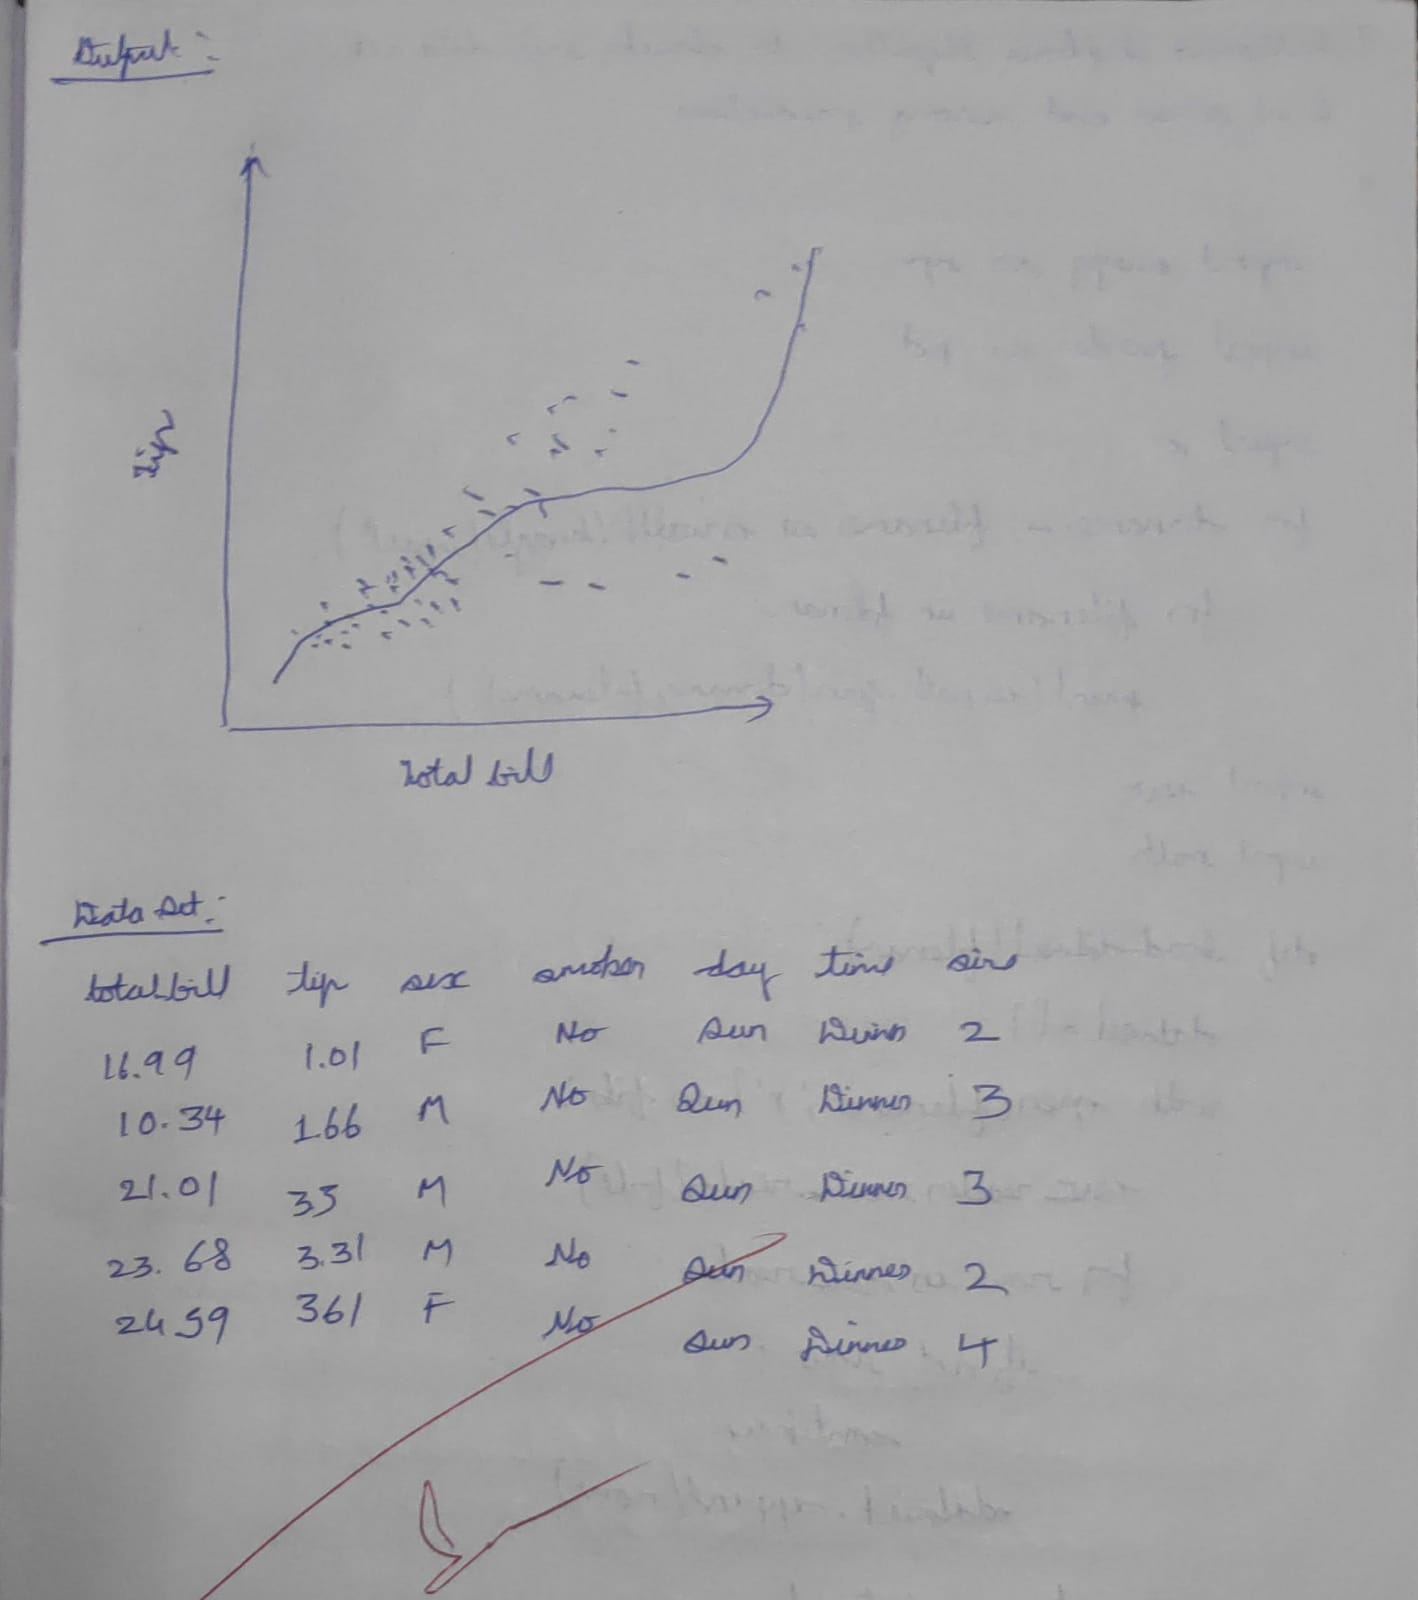 Output :
Tip
Total bill
Data Set :
total-bill tip sex smoker day time size
16.99 1.01 F No Sun Dinner 2
10.34 1.66 M No Sun Dinner 3
21.01 35 M No Sun Dinner 3
23.68 3.31 M No Sun Dinner 2
24 59 361 F No Sun Dinner 4